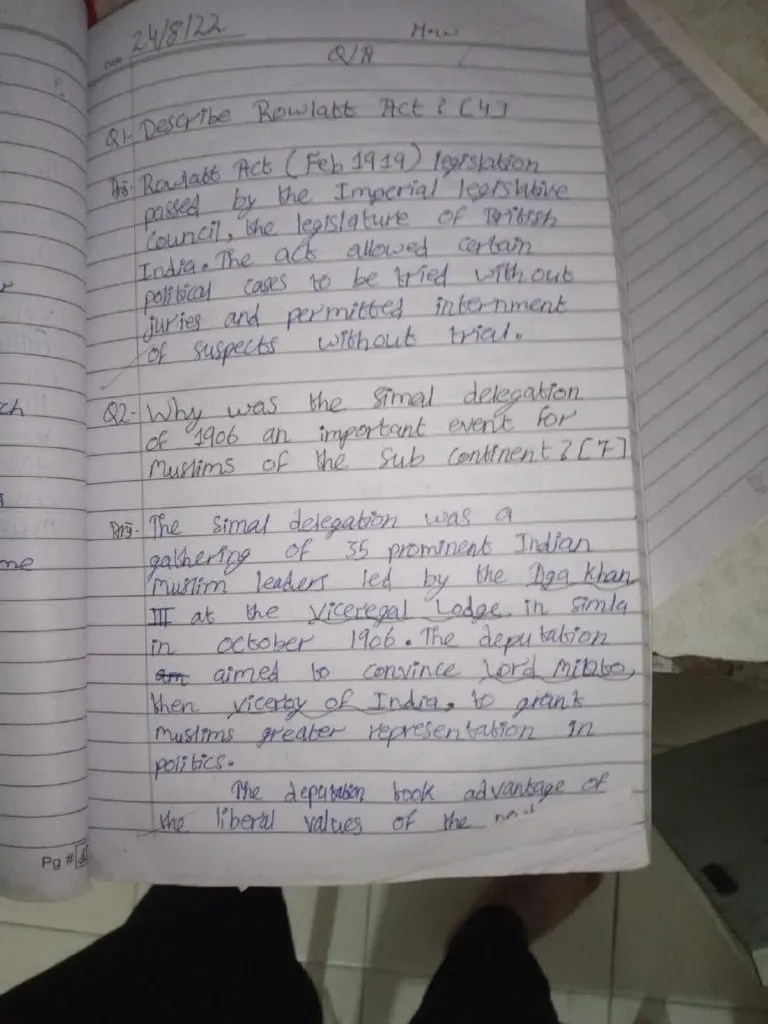 24/8/22
H.W
Q/A
Q1- Describe Rowlatt Act? [4]
Ans- Rowlatt Act (Feb 1919) legislation
passed by the Imperial legislative
Council, the legislature of British
India. The act allowed certain
political cases to be tried without
juries and permitted internment
of suspects without trial.
Q2- Why was the Simal delegation
of 1906 an important event for
Muslims of the Sub Continent? [7]
Ans- The Simal delegation was a
gathering of 35 prominent Indian
Muslim leaders led by the Aga Khan
III at the Viceregal Lodge in Simla
in october 1906. The deputation
aimed to convince Lord Minto,
then viceroy of India, to grant
Muslims greater representation in
politics.
The deputation took advantage of
the liberal values of the
Pg #
ch
me